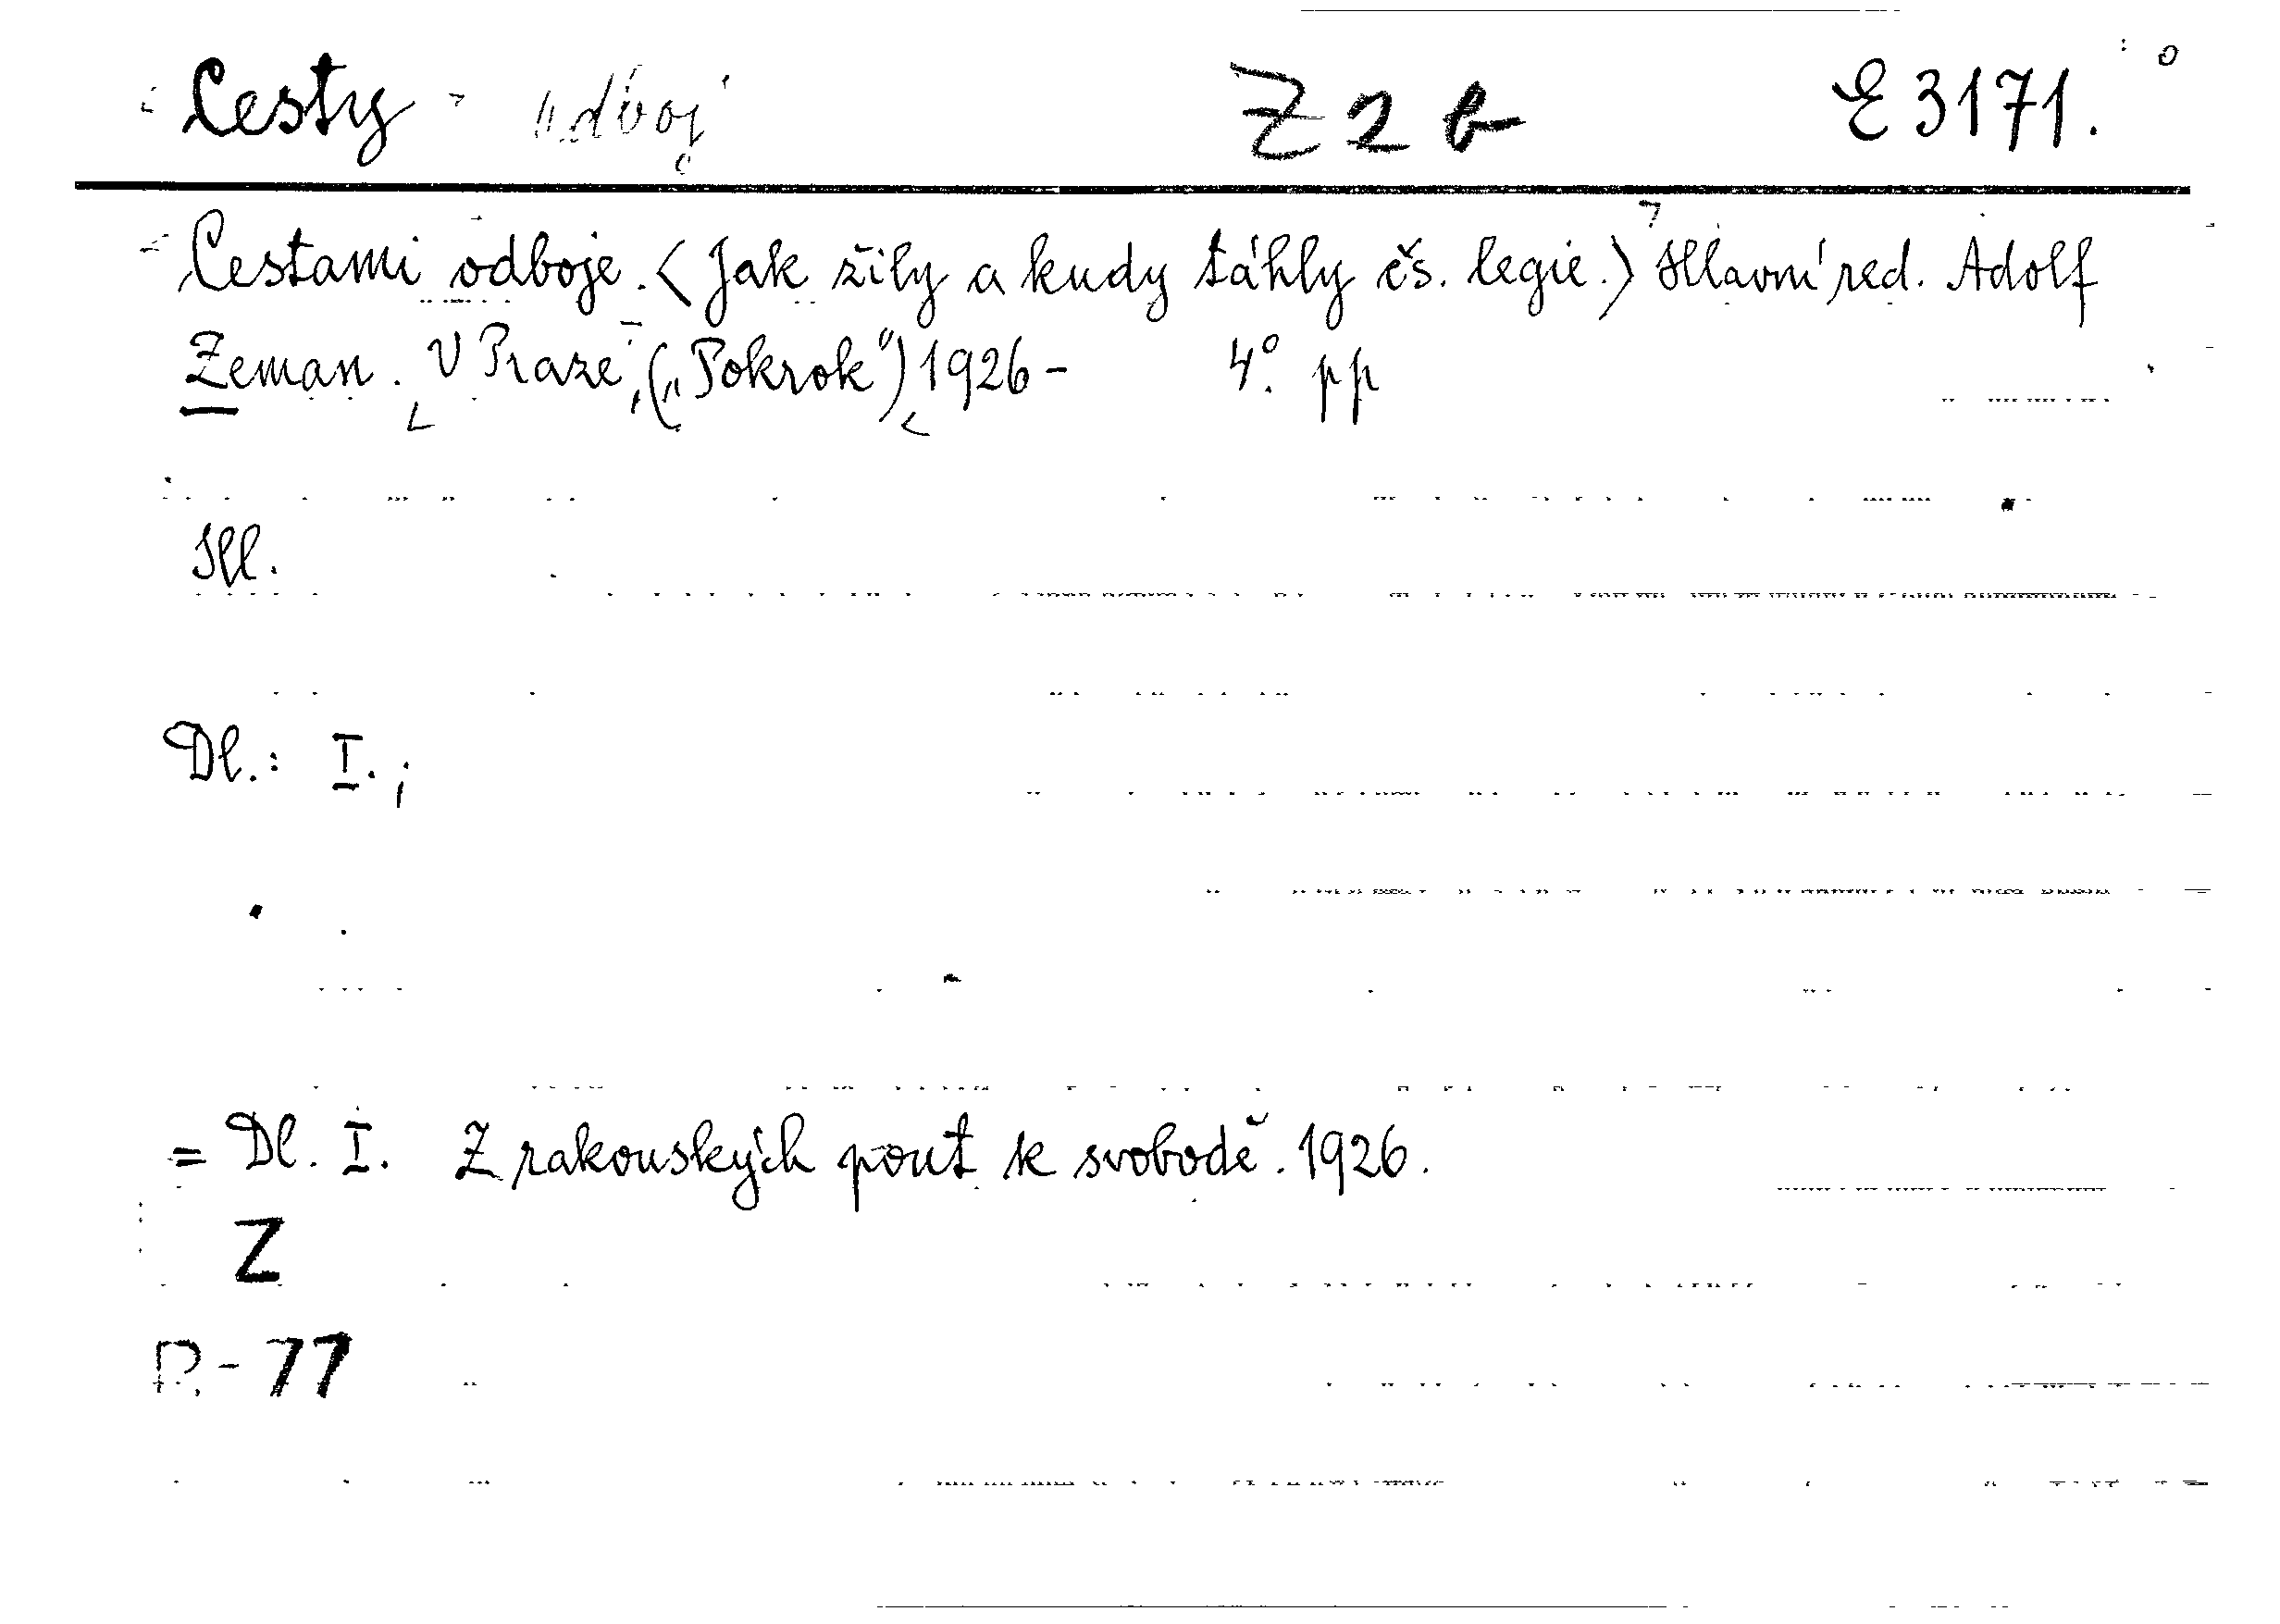 Cesty - odboj Z 2 b E 3171.
Cestami odboje. <Jak žily a kudy táhly čs. legie.> Hlavní red. Adolf
Zeman. V Praze, („Pokrok") 1926- 4°. pp
Ill.
Dl.: I.;
= Dl. I. Z rakouských pout k svobodě. 1926.
Z
P.-77